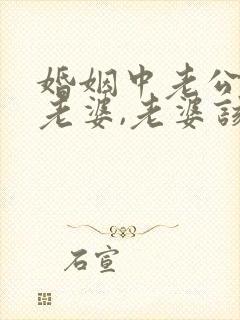 婚姻中老公
老婆,老婆該
石宣